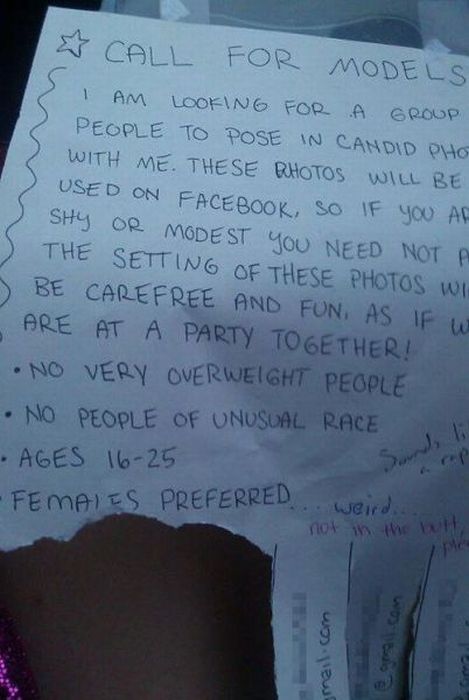 CALL FOR MODELS
I AM LOOKING FOR A GROUP
PEOPLE TO POSE IN CANDID PHO
WITH ME. THESE PHOTOS WILL BE
USED ON FACEBOOK, SO IF YOU AR
SHY OR MODEST YOU NEED NOT A
THE SETTING OF THESE PHOTOS WI
BE CAREFREE AND FUN, AS IF W
ARE AT A PARTY TOGETHER!
• NO VERY OVERWEIGHT PEOPLE
• NO PEOPLE OF UNUSUAL RACE
• AGES 16-25
Sounds li
a rap
• FEMALES PREFERRED... weird...
not in the butt,
ple
mail.com
@gmail.com